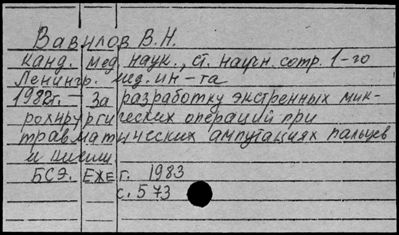 Вавилов В.Н.
канд. мед. наук., ст. научн. сотр. 1-го
Ленингр. мед. ин-та
1982г. - За разработку экстренных мик-
рохирургических операций при
травматических ампутациях пальцев
и кисти
БСЭ. Ежег. 1983
с. 573